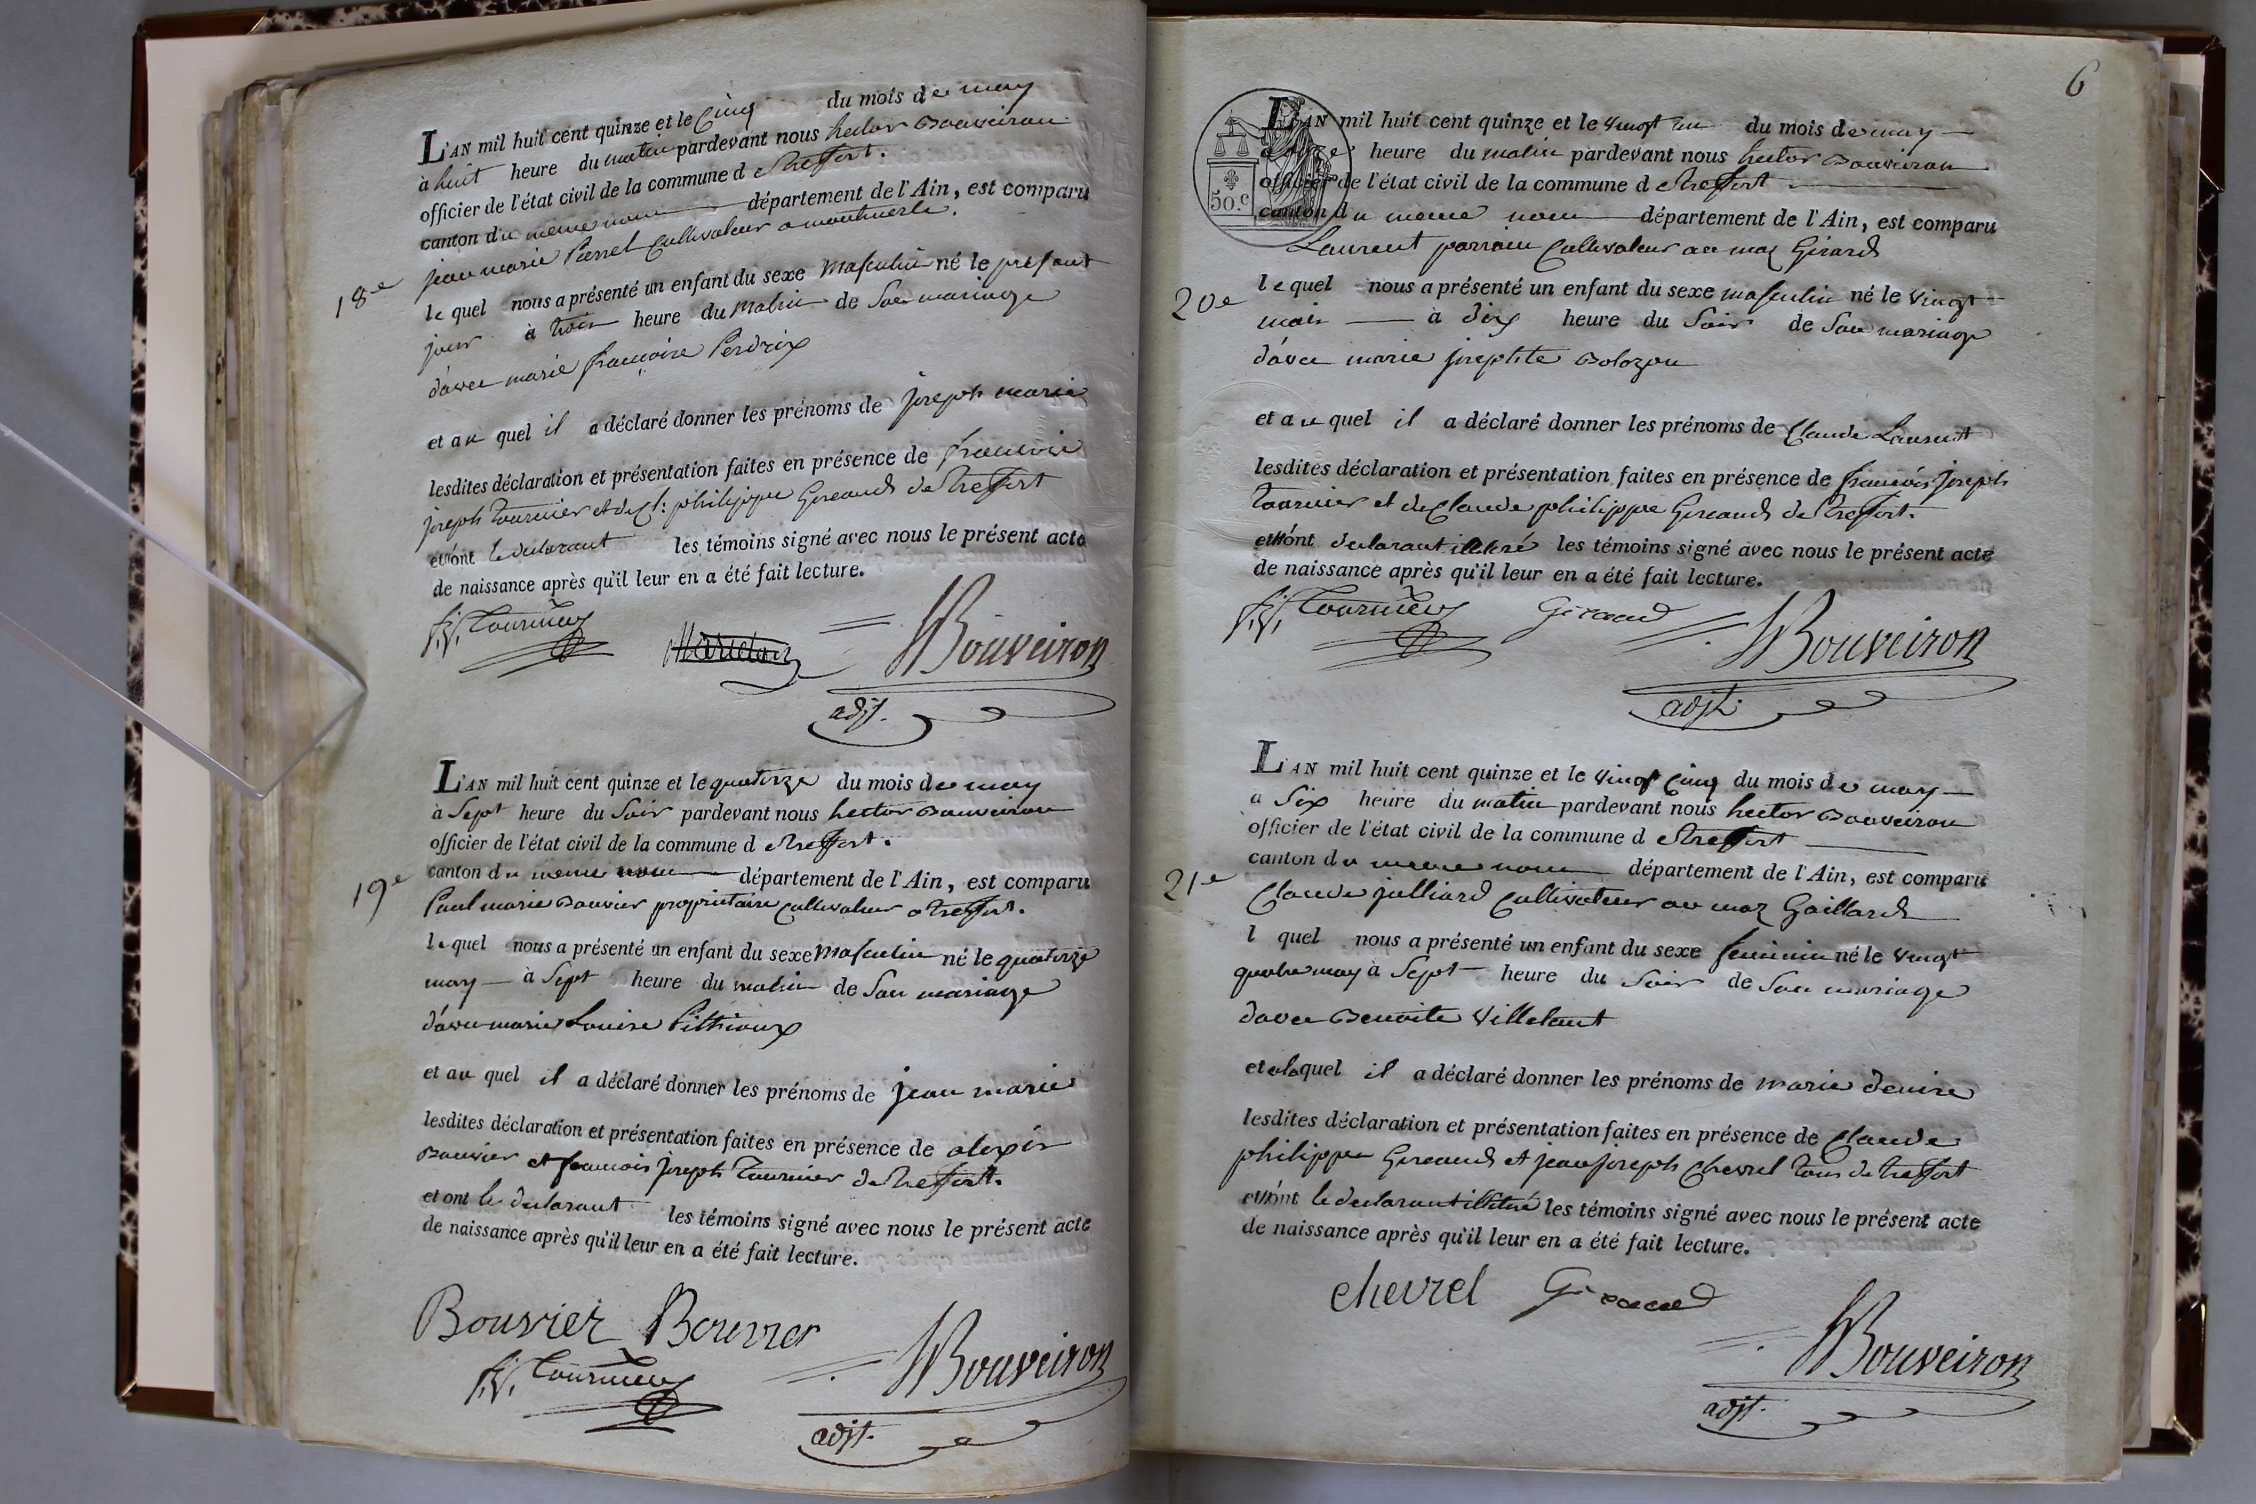 18e
L'AN mil huit cent quinze et le Cinq du mois de may
à huit heure du matin pardevant nous hector Bouveiron
officier de l'état civil de la commune d etreffort.
canton du meme nom département de l'Ain, est comparu
jean marie Perret Cultivateur a montmerle.
le quel nous a présenté un enfant du sexe Masculin né le présant
jour à trois heure du Matin de Son mariage
d'avec marie françoise Perdrix
et au quel il a déclaré donner les prénoms de joseph marie
lesdites déclaration et présentation faites en présence de francois
joseph tournier et de Cl: philippe Gereaud de treffort
et ont le declarant les témoins signé avec nous le présent acte
de naissance après qu'il leur en a été fait lecture.
f.j. Tournier HBouveiron
adjt.
19e
L'AN mil huit cent quinze et le quatorze du mois de may
à Sept heure du Soir pardevant nous hector Bouveiron
officier de l'état civil de la commune d etreffort.
canton du meme nom département de l'Ain, est comparu
Paul marie Bouvier propriétaire Cultivateur a treffort.
le quel nous a présenté un enfant du sexe Masculin né le quatorze
may à Sept heure du matin de Son mariage
d'avec marie Louise Pithioux
et au quel il a déclaré donner les prénoms de jean marie
lesdites déclaration et présentation faites en présence de alexis
Bouvier et francois joseph Tournier de treffort.
et ont le declarant les témoins signé avec nous le présent acte
de naissance après qu'il leur en a été fait lecture.
Bouvier Bouvier
f.j. Tournier HBouveiron
adjt.
6
50.c
20e
L'AN mil huit cent quinze et le vingt un du mois de may
heure du matin pardevant nous hector Bouveiron
officier de l'état civil de la commune d etreffort
canton du meme nom département de l'Ain, est comparu
Laurent parrain Cultivateur au maz Girard
le quel nous a présenté un enfant du sexe masculin né le vingt
mai à dix heure du Soir de Son mariage
d'avec marie josephte Bolozon
et au quel il a déclaré donner les prénoms de Claude Laurent
lesdites déclaration et présentation faites en présence de francois joseph
Tournier et de Claude philippe Gereaud de treffort.
et ont declarant illitéré les témoins signé avec nous le présent acte
de naissance après qu'il leur en a été fait lecture.
f.j. Tournier Gereaud HBouveiron
adjt.
21e
L'AN mil huit cent quinze et le vingt Cinq du mois de may
a Six heure du matin pardevant nous hector Bouveiron
officier de l'état civil de la commune d etreffort
canton du meme nom département de l'Ain, est comparu
Claude julliard Cultivateur au maz Gaillard
l quel nous a présenté un enfant du sexe feminin né le vingt
quatre may à Sept heure du Soir de Son mariage
d'avec Benoite Villetant
et alaquel il a déclaré donner les prénoms de marie denise
lesdites déclaration et présentation faites en présence de Claude
philippe Gereaud et jean joseph Chevrel tous de treffort
et ont le declarant illitéré les témoins signé avec nous le présent acte
de naissance après qu'il leur en a été fait lecture.
chevrel Gereaud
HBouveiron
adjt.